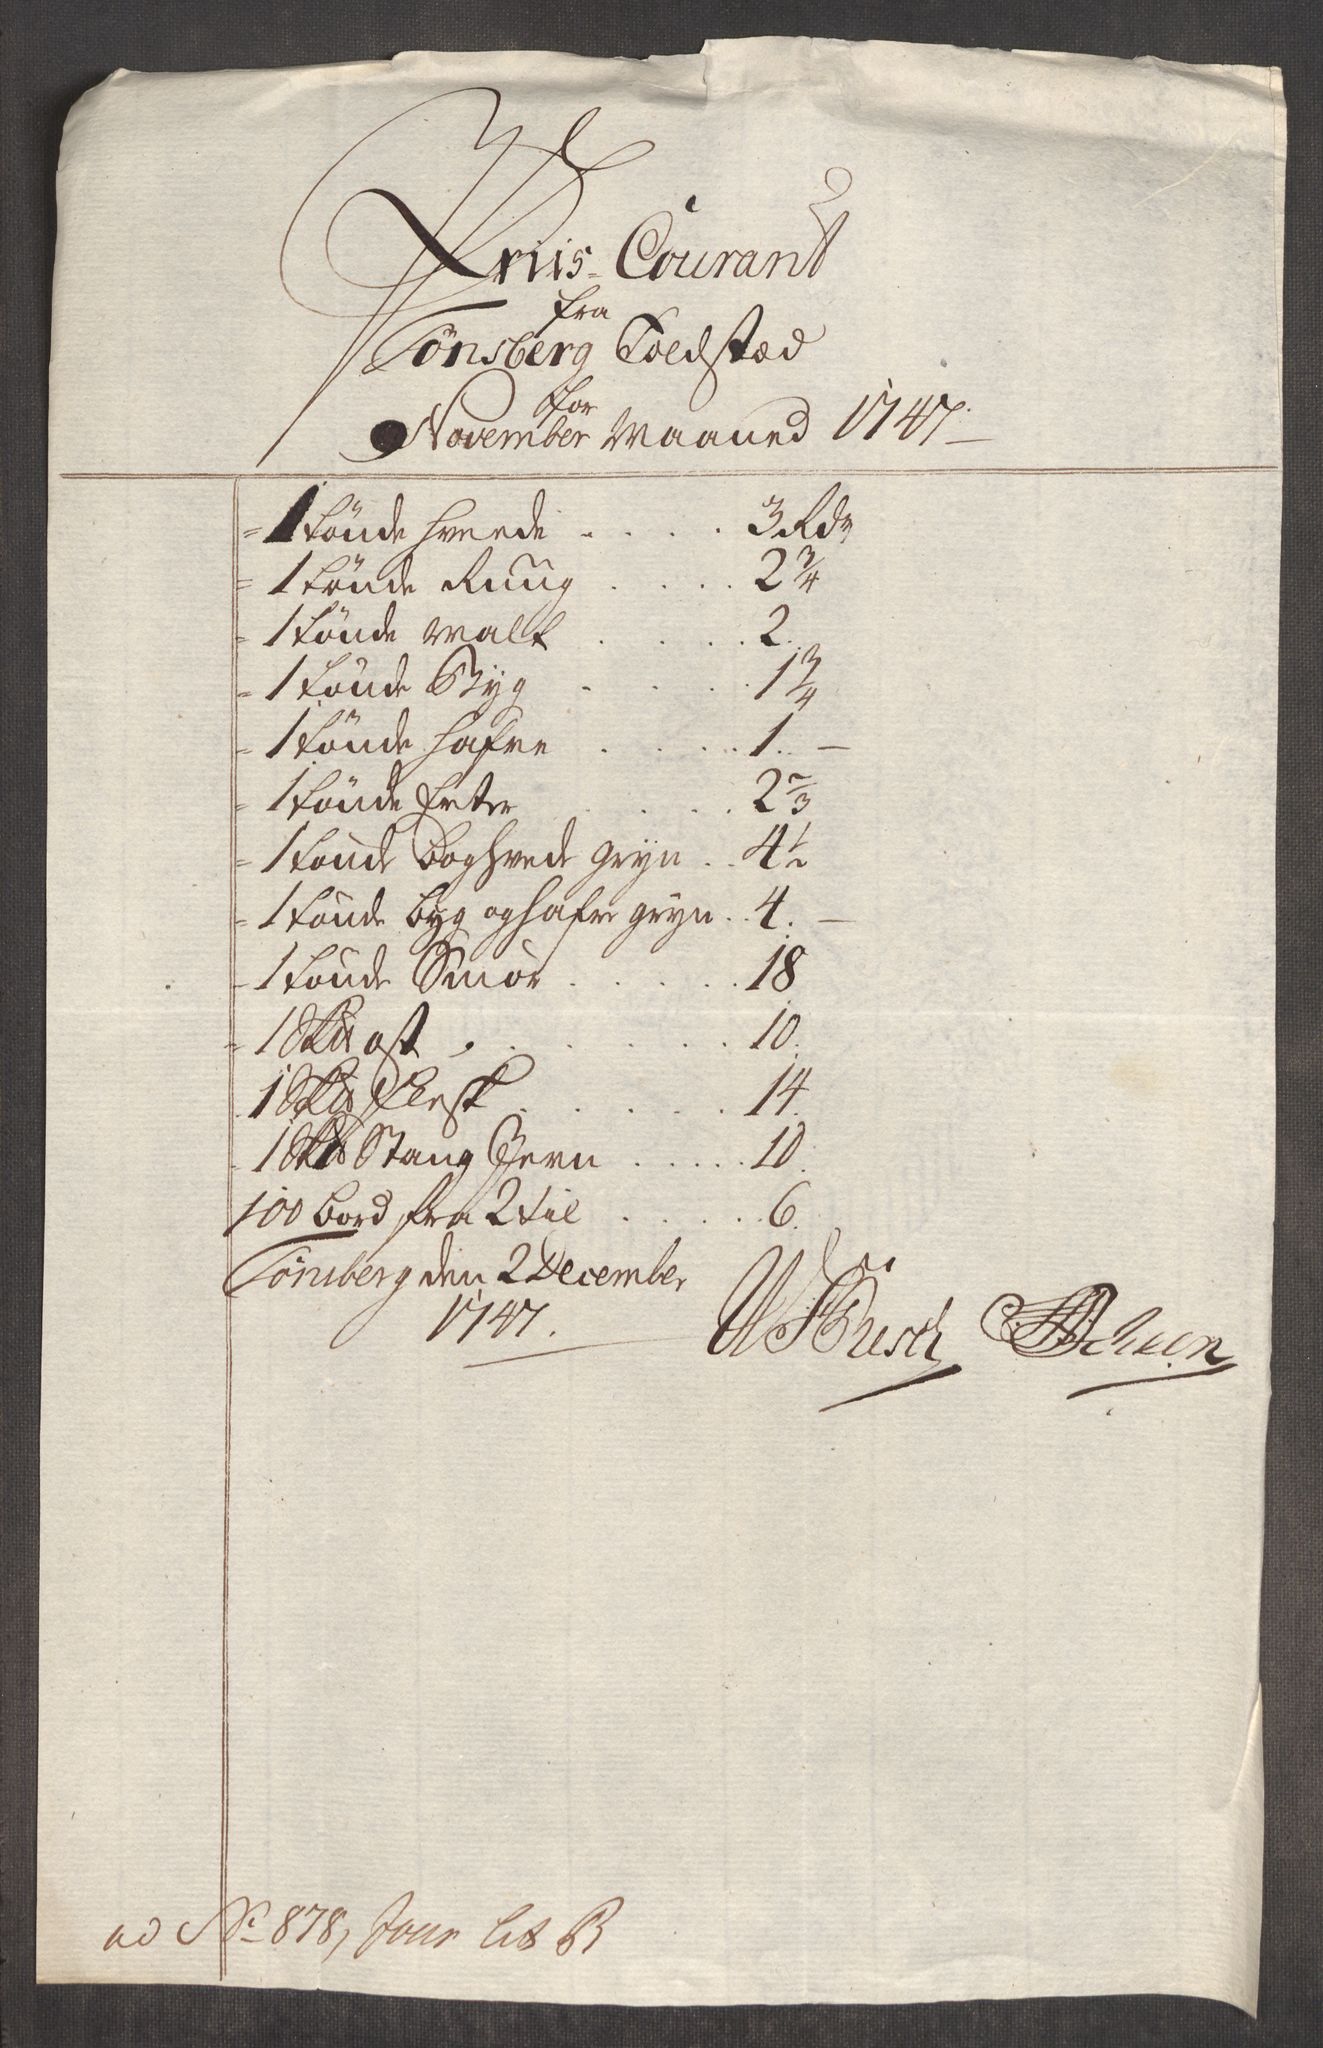 Priis-Courant
fra
Tönsberg Toldstæd
for
November Maaned 1747.
1 tönde hveede . . . . 3 Rdr
1 tönde Ruug . . . . 2 3/4
1 tönde Malt . . . . 2.
1 tönde Byg . . . . 1 3/4
1 tönde hafre . . . . 1. —
1 tönde Erter . . . . 2 2/3
1 tönde boghvede gryn . . 4 1/2
1 tönde byg og hafre gryn . . 4. —
1 tönde Smör . . . . . 18
1 Sk℔ ost . . . . . . 10.
1 Sk℔ Flesk . . . . . 14.
1 Sk℔ Stang Jern . . . . . 10.
100 bord fra 2 til . . . . . 6.
Tönsberg den 2 December
1747.
Büsch
ad No 878, Jour lit B